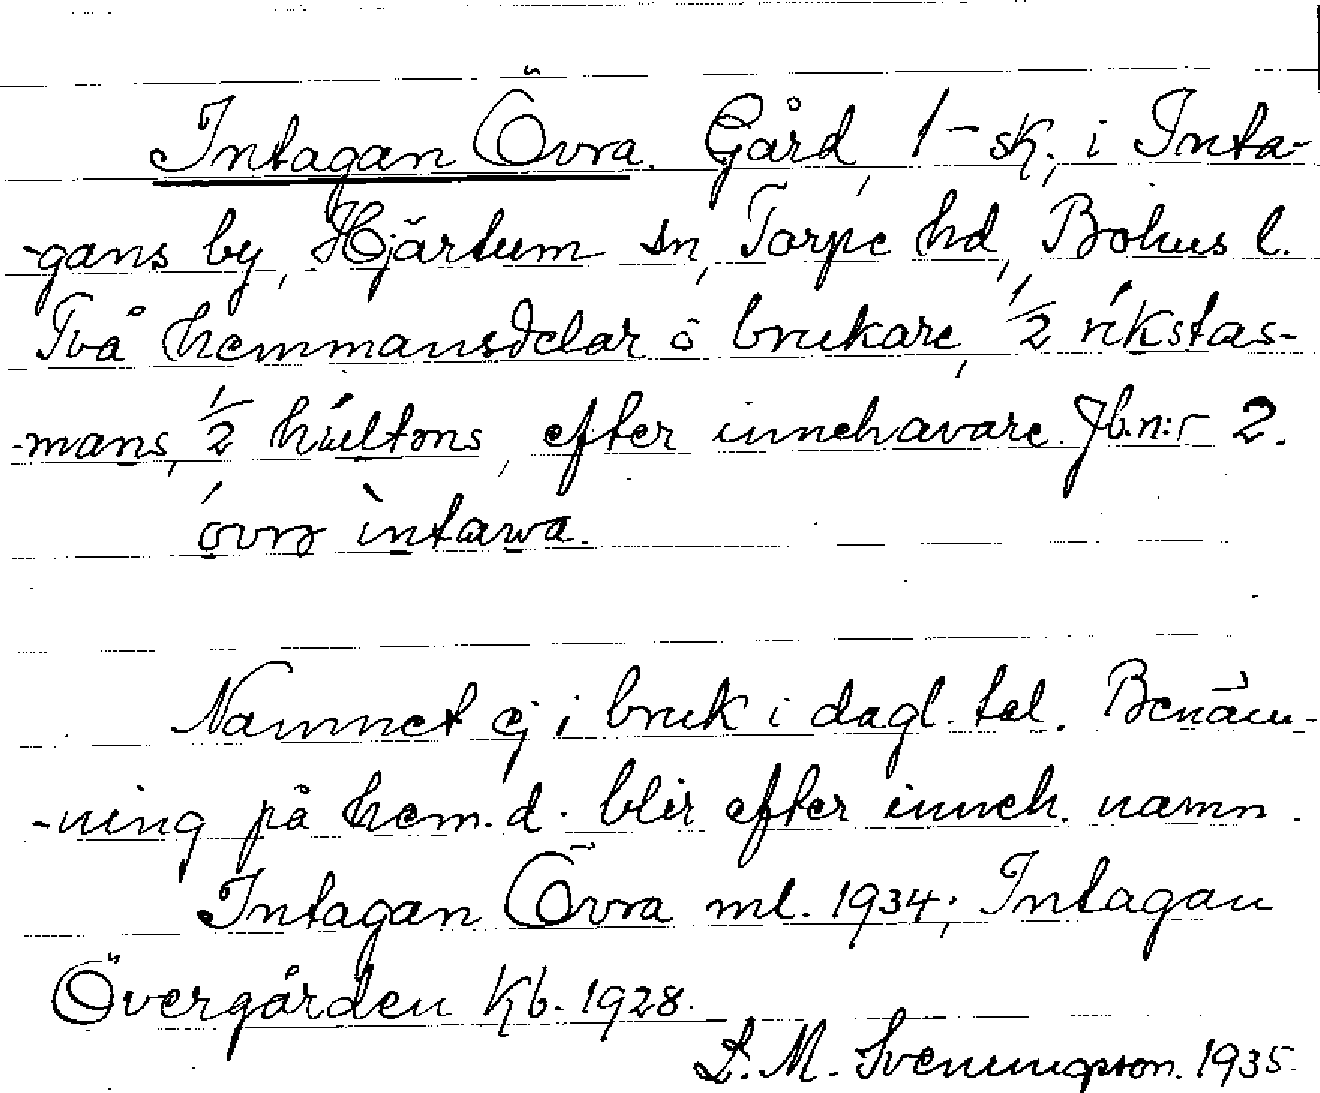 Intagan Övra. Gård, 1-sk., i Inta-
-gans by, Hjärtum sn, Torpe hd, Bohus l.
Två hemmansdelar o brukare, 1/2 rikstas-
-mans, 1/2 hultons, efter innehavare. Jb.n:r 2.
övrə intawa.
Namnet ej i bruk i dagl. tal. Benäm-
-ning på hem.d. blir efter inneh. namn.
Intagan Övra ml. 1934; Intagan
Övergården Kb. 1928.
D. M. Svenningson. 1935.